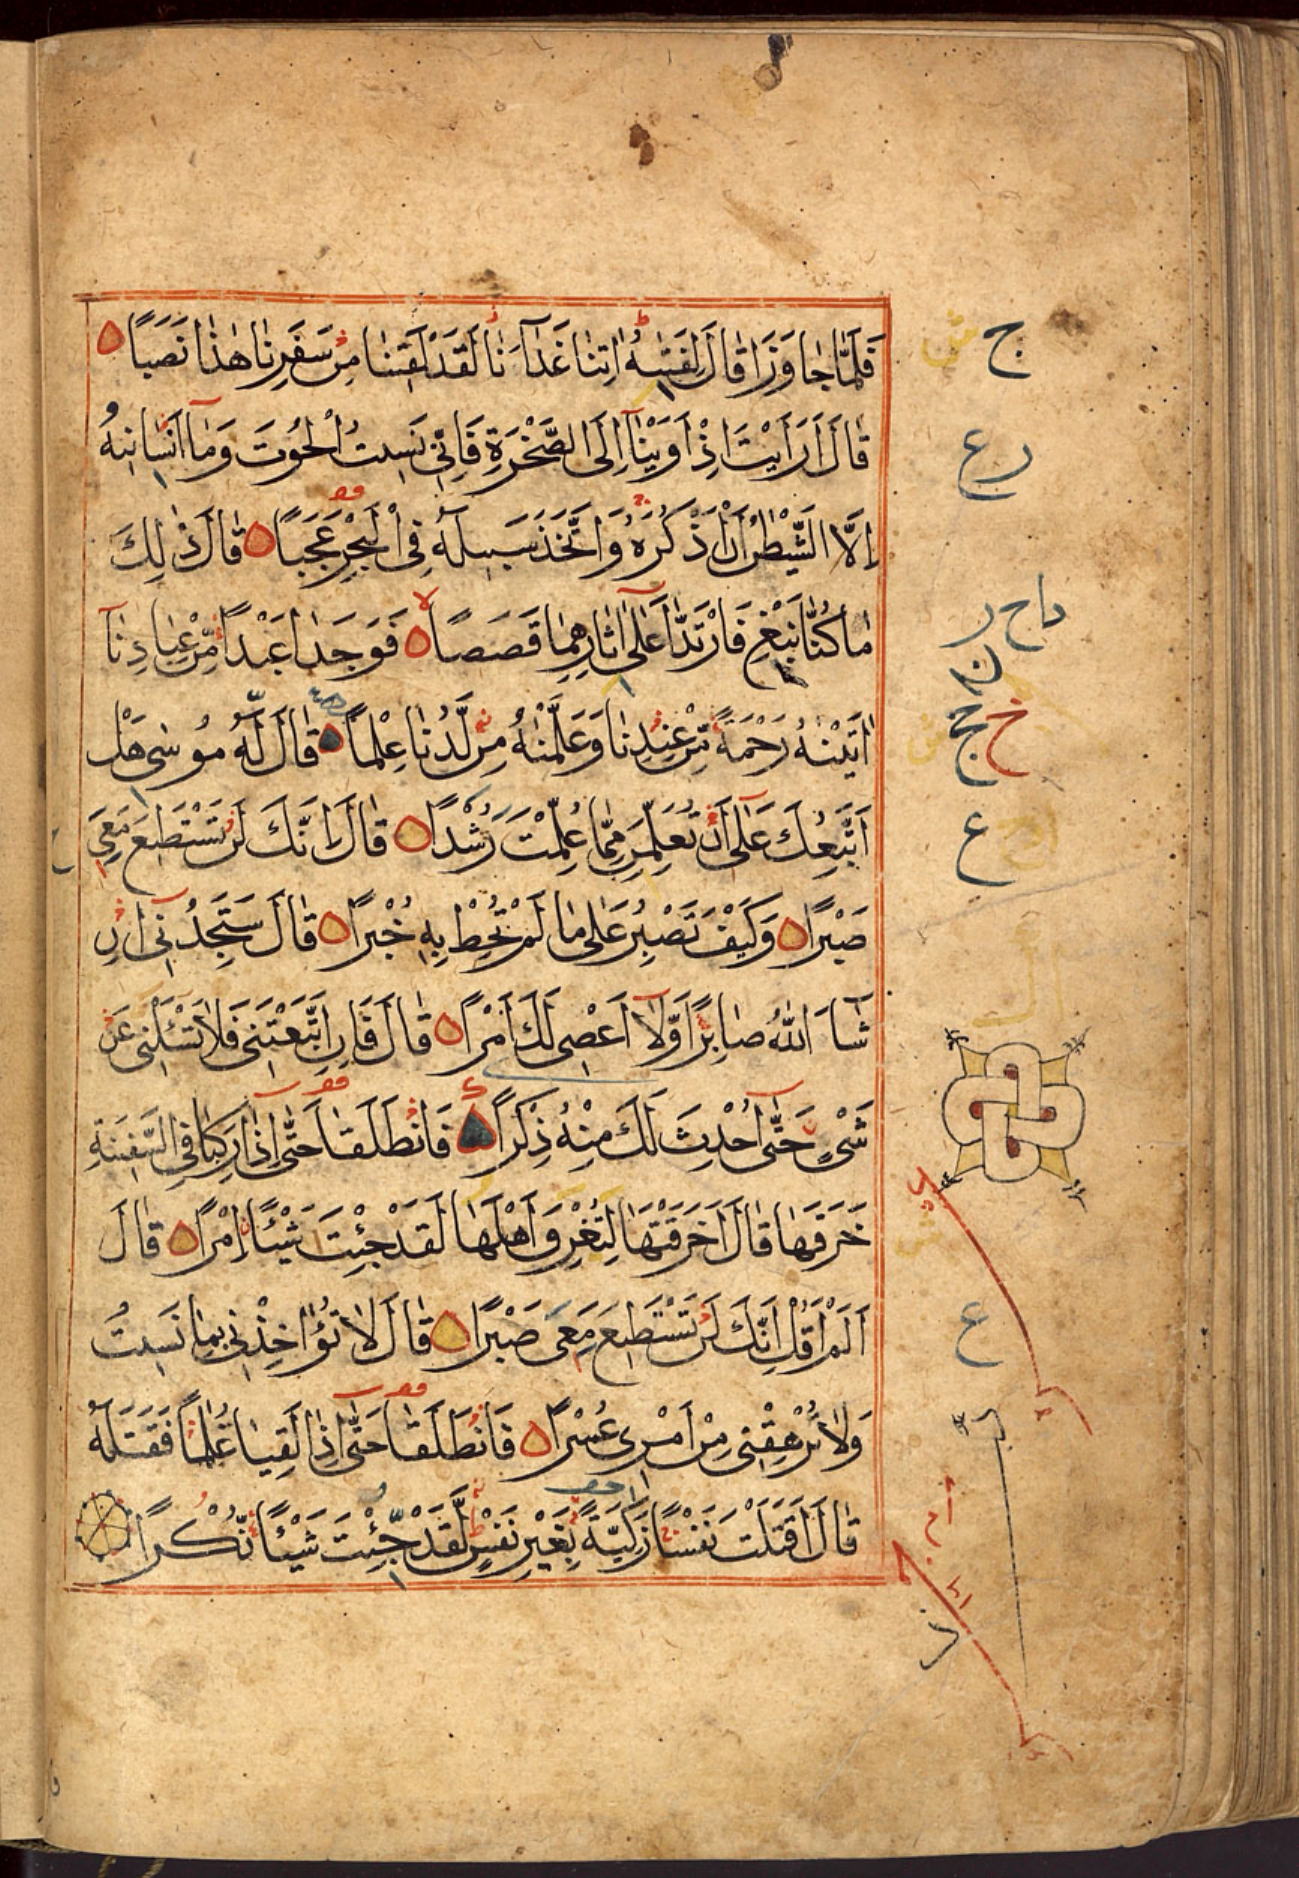 فَلَمَّا جَاوَزَا قَالَ لِفَتٰىهُ اٰتِنَا غَدَآءَنَا لَقَدْ لَقِيْنَا مِنْ سَفَرِنَا هٰذَا نَصَبًا
قَالَ اَرَاَيْتَ اِذْ اَوَيْنَآ اِلَى الصَّخْرَةِ فَاِنِّيْ نَسِيْتُ الْحُوْتَ وَمَآ اَنْسَانِيْهُ
اِلَّا الشَّيْطٰنُ اَنْ اَذْكُرَهُ وَاتَّخَذَ سَبِيْلَهٗ فِي الْبَحْرِ عَجَبًا قَالَ ذٰلِكَ
مَا كُنَّا نَبْغِ فَارْتَدَّا عَلٰٓى اٰثَارِهِمَا قَصَصًا فَوَجَدَا عَبْدًا مِّنْ عِبَادِنَآ
اٰتَيْنٰهُ رَحْمَةً مِّنْ عِنْدِنَا وَعَلَّمْنٰهُ مِنْ لَّدُنَّا عِلْمًا قَالَ لَهٗ مُوْسٰى هَلْ
اَتَّبِعُكَ عَلٰٓى اَنْ تُعَلِّمَنِ مِمَّا عُلِّمْتَ رُشْدًا قَالَ اِنَّكَ لَنْ تَسْتَطِيْعَ مَعِيَ
صَبْرًا وَكَيْفَ تَصْبِرُ عَلٰى مَا لَمْ تُحِطْ بِهٖ خُبْرًا قَالَ سَتَجِدُنِيْٓ اِنْ
شَآءَ اللهُ صَابِرًا وَّلَآ اَعْصِيْ لَكَ اَمْرًا قَالَ فَاِنِ اتَّبَعْتَنِيْ فَلَا تَسْئَلْنِيْ عَنْ
شَيْءٍ حَتّٰٓى اُحْدِثَ لَكَ مِنْهُ ذِكْرًا فَانْطَلَقَا حَتّٰٓى اِذَا رَكِبَا فِي السَّفِيْنَةِ
خَرَقَهَا قَالَ اَخَرَقْتَهَا لِتُغْرِقَ اَهْلَهَا لَقَدْ جِئْتَ شَيْئًا اِمْرًا قَالَ
اَلَمْ اَقُلْ اِنَّكَ لَنْ تَسْتَطِيْعَ مَعِيَ صَبْرًا قَالَ لَا تُؤَاخِذْنِيْ بِمَا نَسِيْتُ
وَلَا تُرْهِقْنِيْ مِنْ اَمْرِيْ عُسْرًا فَانْطَلَقَا حَتّٰٓى اِذَا لَقِيَا غُلٰمًا فَقَتَلَهٗ
قَالَ اَقَتَلْتَ نَفْسًا زَكِيَّةً بِغَيْرِ نَفْسٍ لَّقَدْ جِّئْتَ شَيْئًا نُّكْرًا
ج
ع
ع
ع